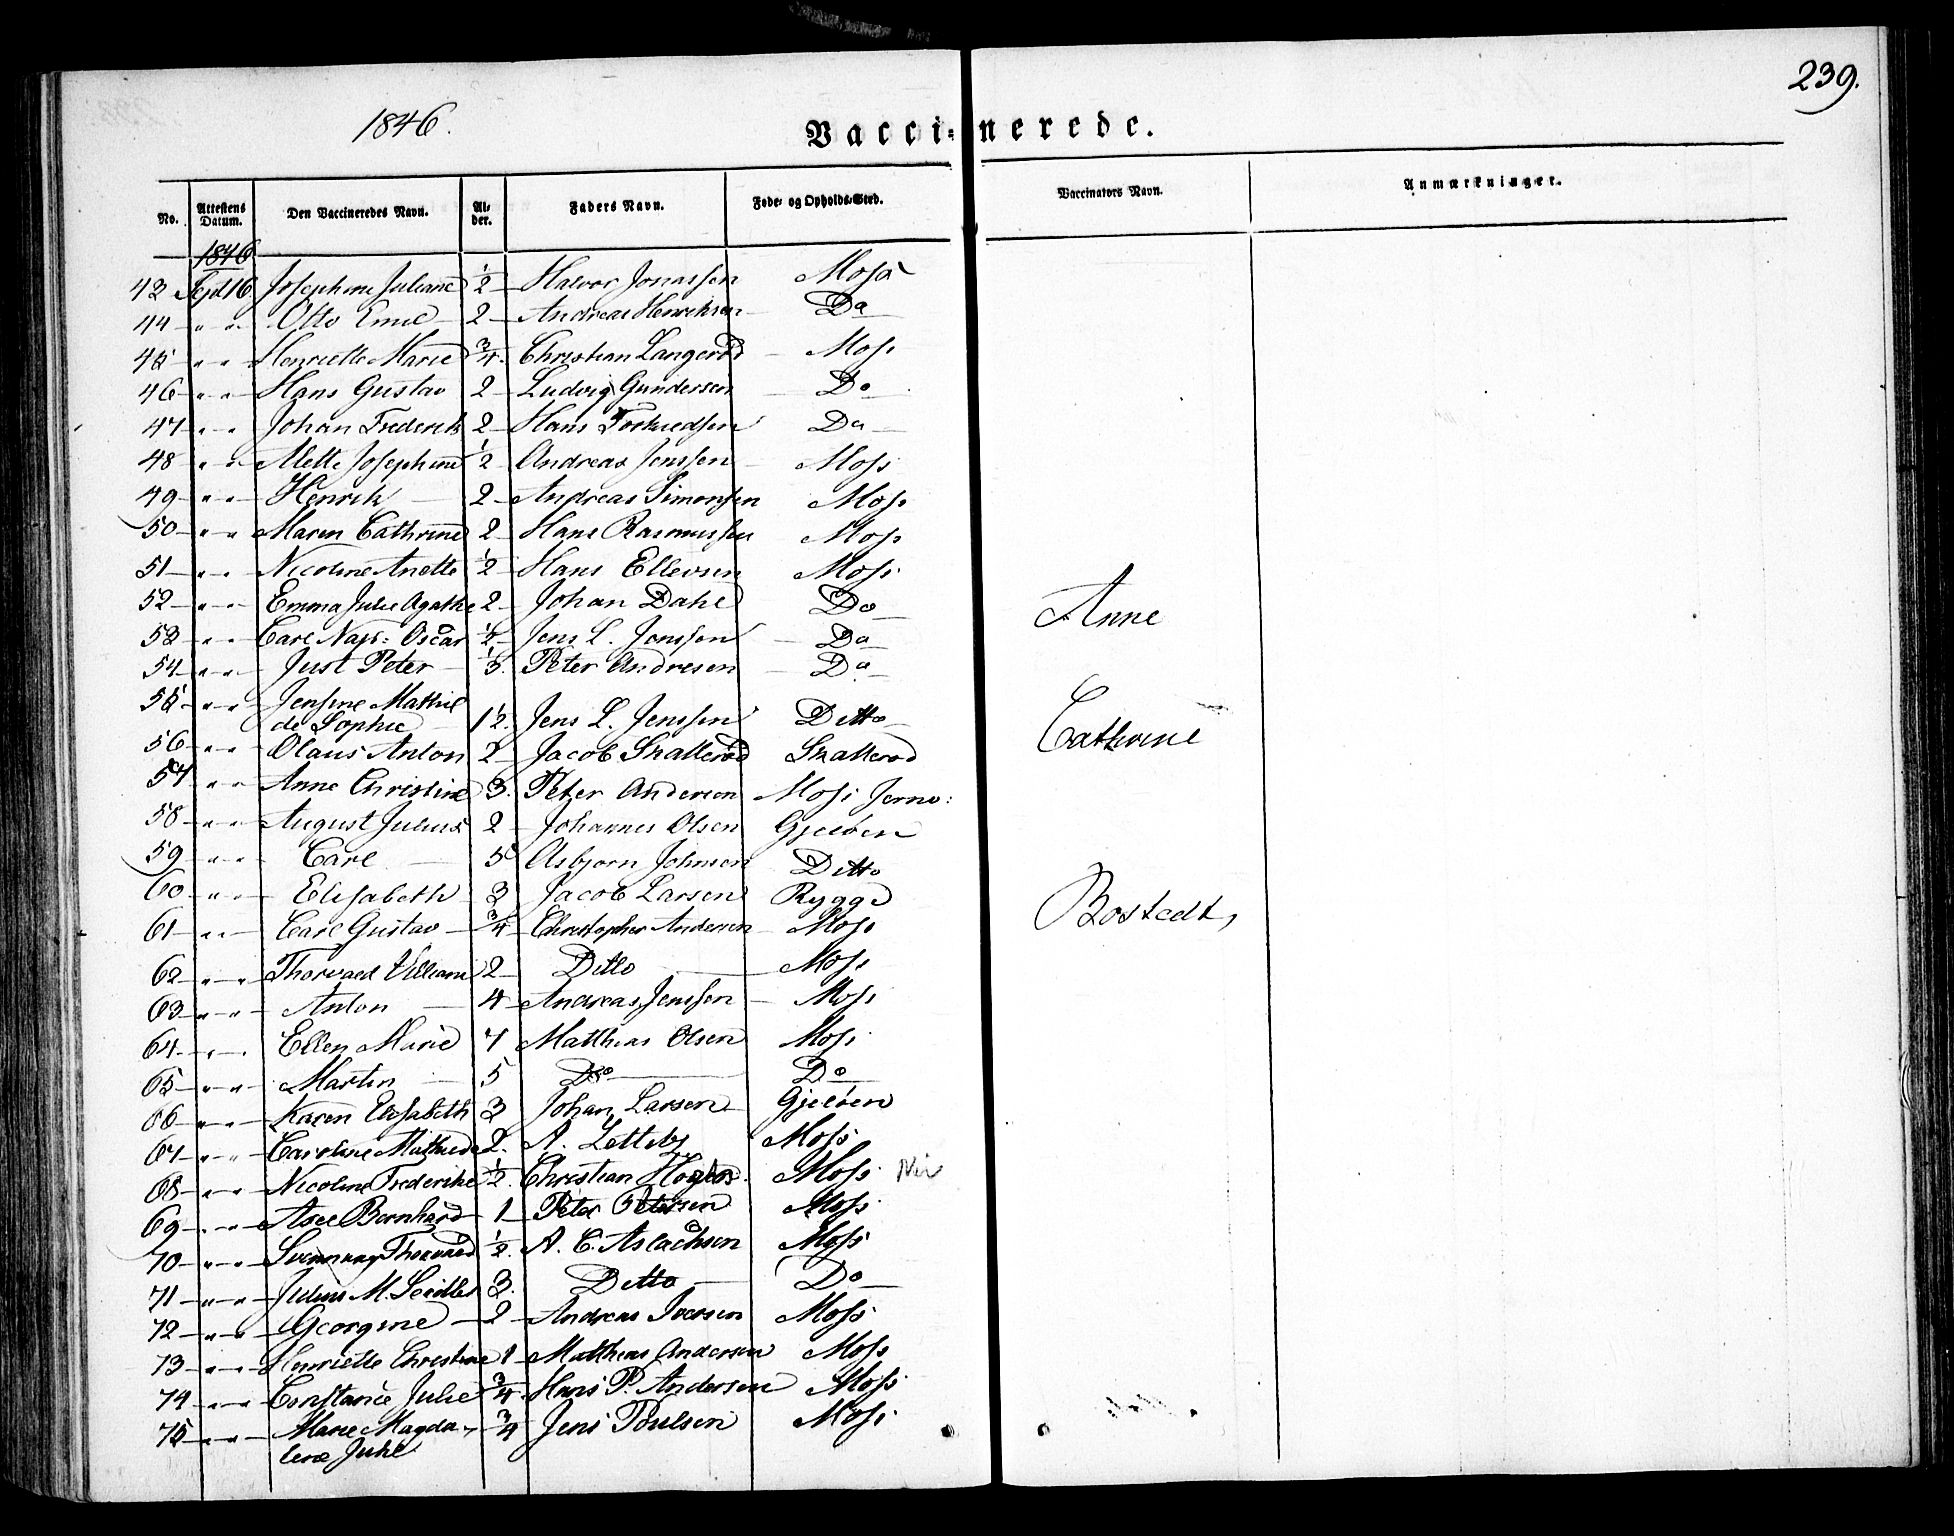 239.
1846.
Vacci-nerede.
No. Attestens Datum. Den Vaccineredes Navn. Al-der. Faders Navn. Føde- og Opholds-Sted. Vaccinators Navn. Anmærkninger.
1846
43 Sept 16 Josephine Juliane 1/2 Halvor Jonassen Moss
44 " " Otto Emil 2 Andreas Henriksen Do
45 " " Henriette Marie 3/4 Christian Langerød Moss
46 " " Hans Gustav 2 Ludvig Gundersen Do
47 " " Johan Frederik 2 Hans Do
48 " " Mette Josephine 1/2 Andreas Jenssen Moss
49 " " Henrik 2 Andreas Simonsen Moss
50 " " Maren Cathrine 2 Hans Rasmussen Moss
51 " " Nicoline Anette 1/2 Hans Ellevsen Moss
52 " " Emma Julie Agathe 2 Johan Dahl Do Anne
53 " " Carl Nap: Oscar 1/2 Jens L. Jenssen Do
54 " " Just Peter 1/3. Peter Andresen Do
55 " " Jensine Mathil
de Sophie 1 1/2. Jens L. Jenssen Ditto Cathrine
56 " " Olaus Anton 2 Jacob Skallerød Skallerød
57 " " Anne Christine 3. Peter Anderson Moss Jernv:
58 " " August Julius 2 Johannes Olsen Gjeløen
59 " " Carl 5 Asbjørn Johnsen Ditto
60 " " Elisabeth 3 Jacob Larsen Rygge Bostedt,
61 " " Carl Gustav 3/4 Christopher Andersen Moss
62 " " Thorvald Villiam 2 Ditto Moss
63 " " Anton 4 Andreas Jenssen Moss
64 " " Ellen Marie 7 Matthias Olsen Moss
65 " " Martin 5 Do Do
66 " " Karen Elisabeth 3 Johan Larsen Gjeløen
67 " " Caroline Mathilde 2. A. Moss
68 " " Nicoline Frederike 1/2. Christian Moss
69 " " Axel Bernhard 1 Peter Petersen Moss
70 " " Thorvald 1/2. A. C. Aslachsen Moss
71 " " Julius M. Seidler 3. Ditto Do
72 " " Georgine 2 Andreas Iversen Moss
73 " " Henriette Christine 1 Matthias Andersen Moss
74 " " Constance Julie 3/4. Hans P. Andersen Moss
75 " " Marie Magda-
lene Juhl 3/4 Jens Poulsen Moss